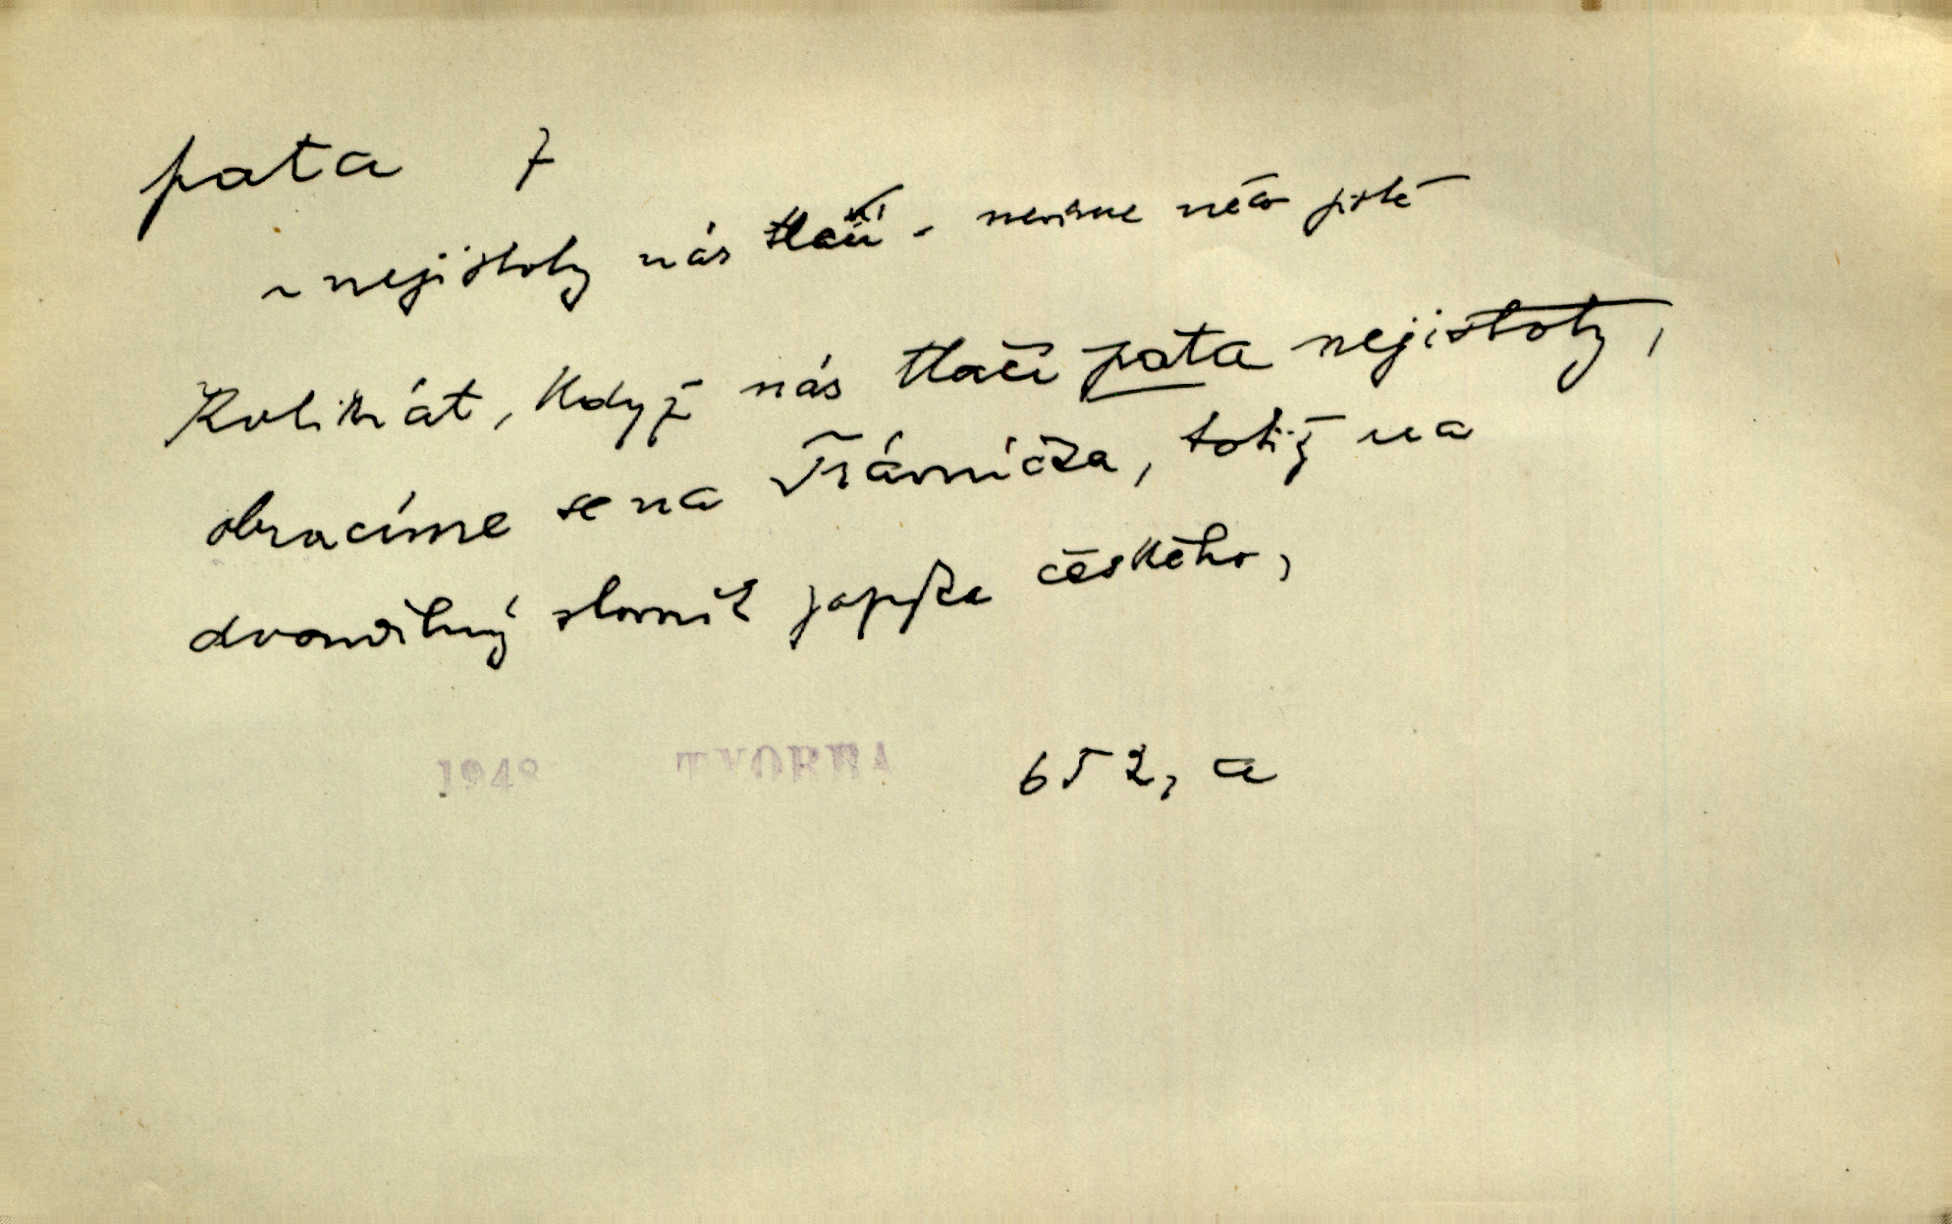 pata 7
~ nejistoty nás tlačí - nevíme něco jistě
Kolikrát, když nás tlačí pata nejistoty,
obracíme se na Trávníčka, totiž na
dvoudílný slovník jazyka českého,
1948 TVORBA 652, a